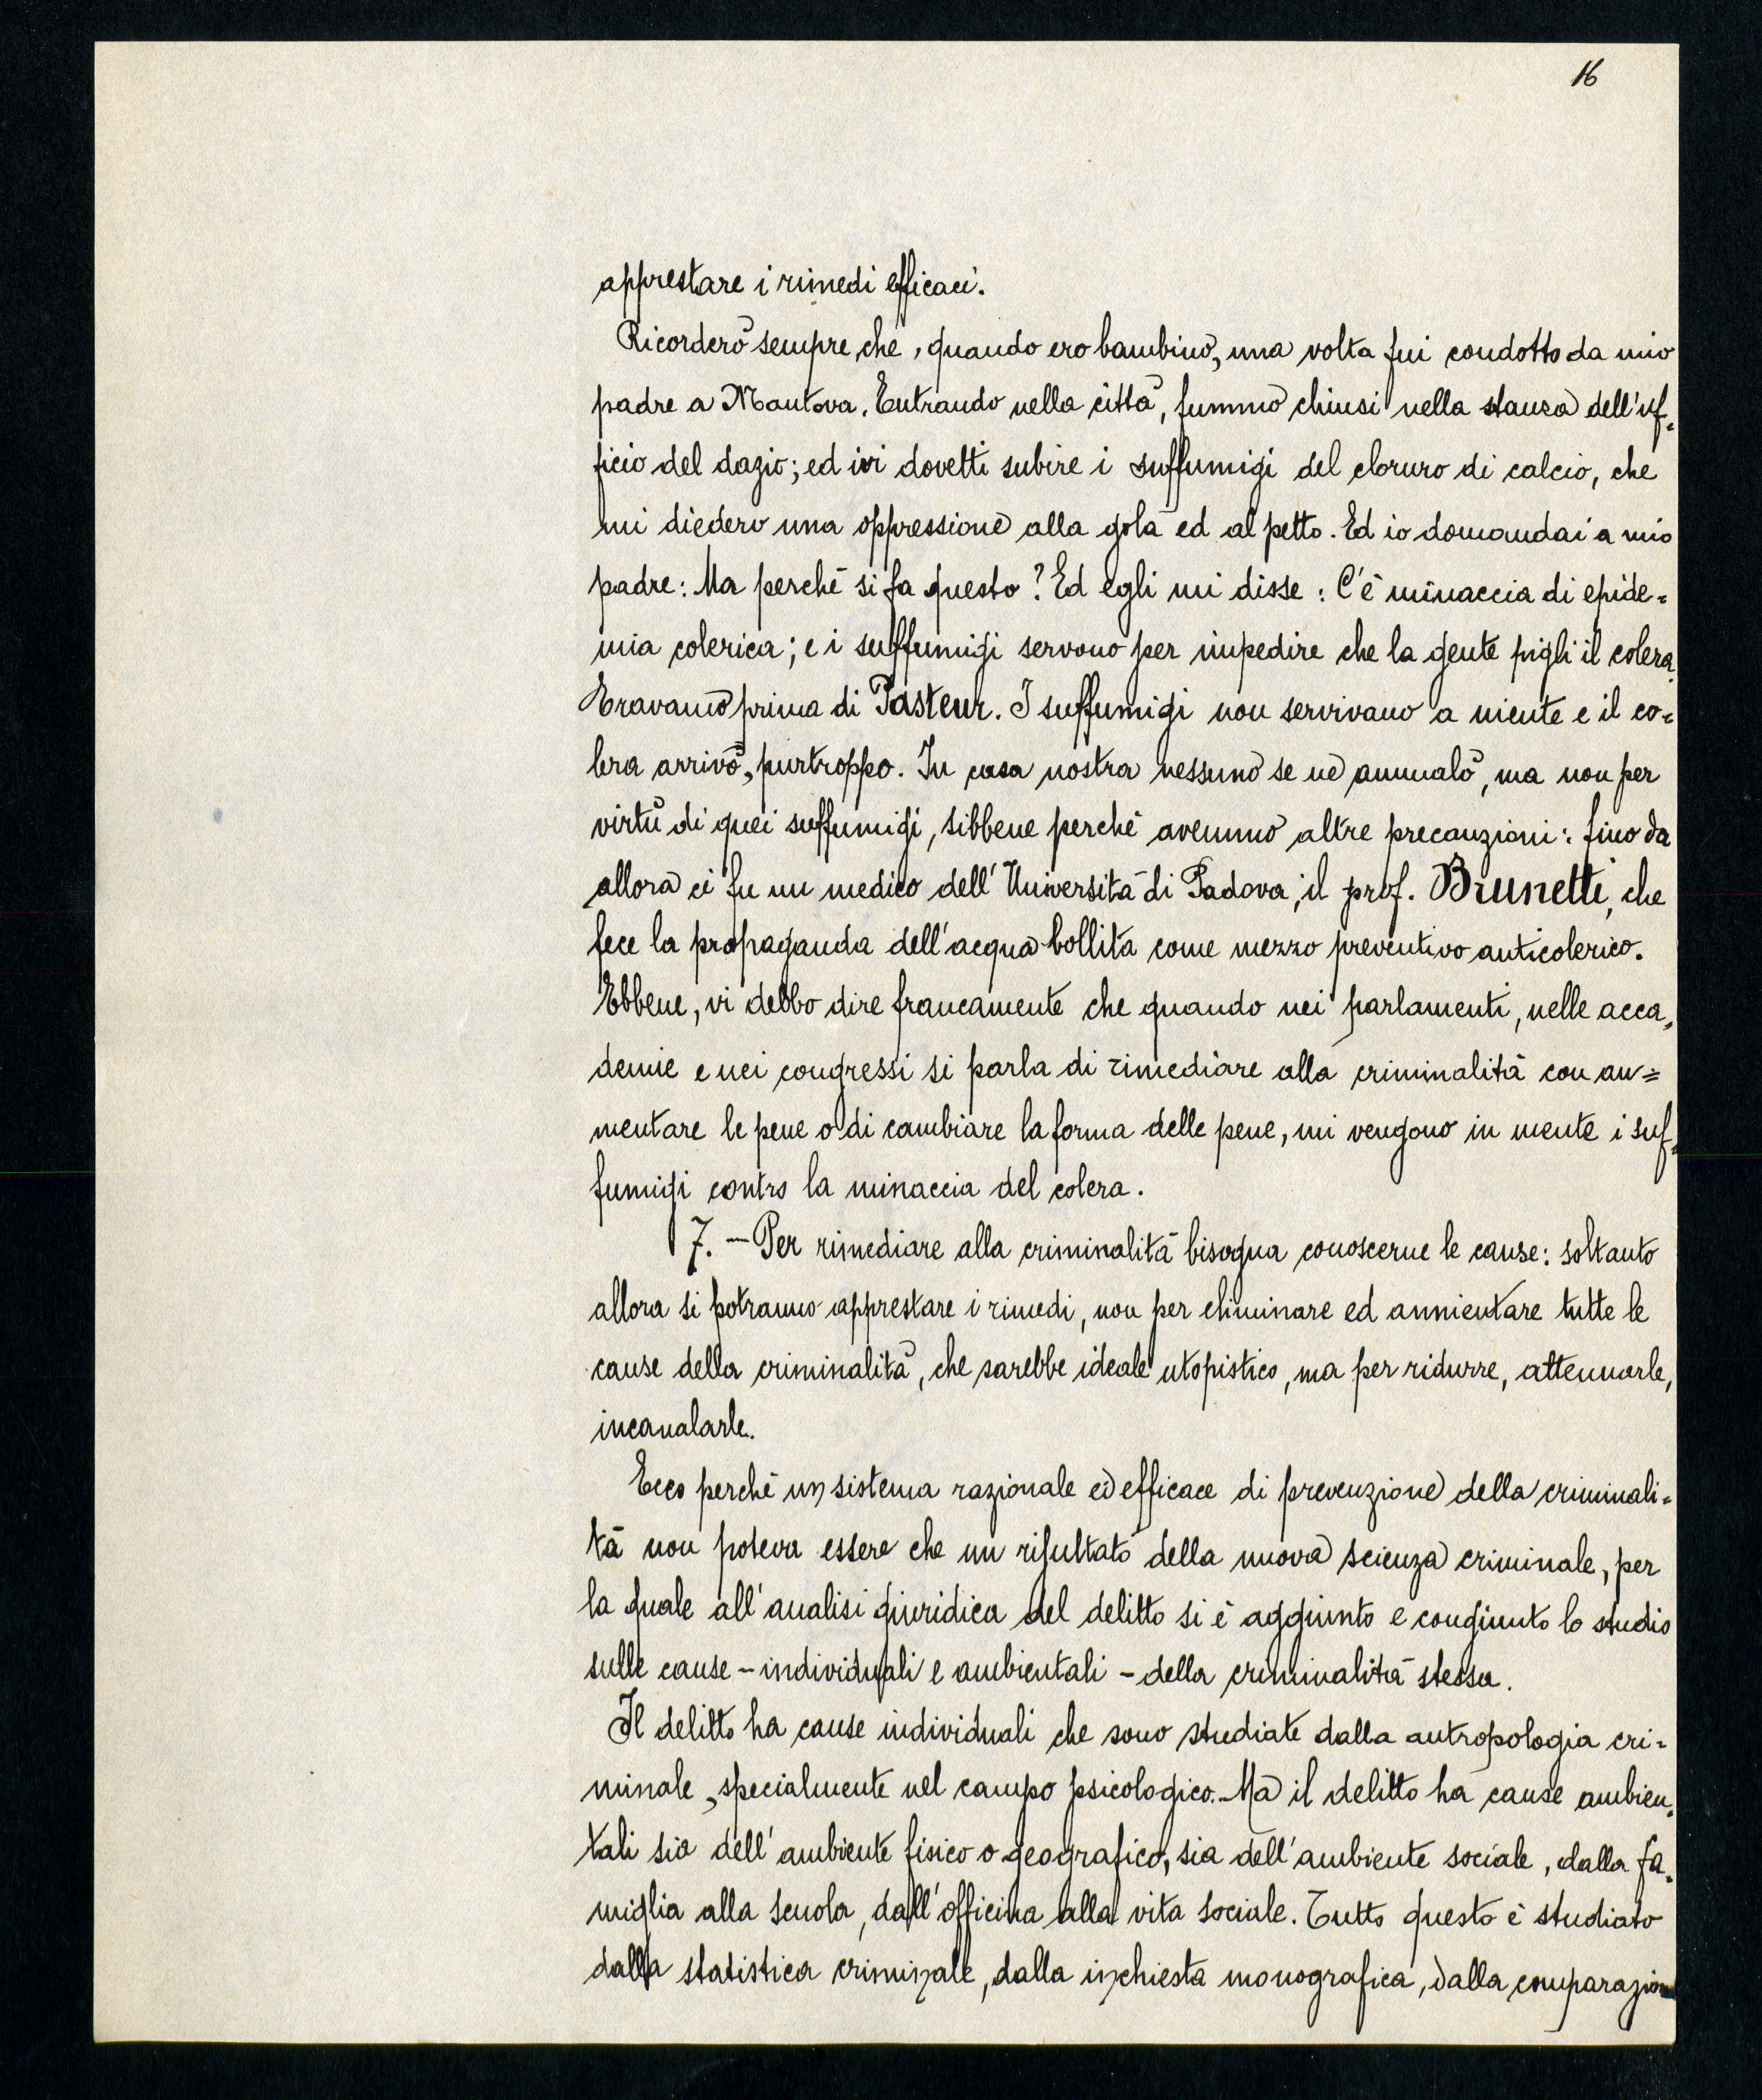 16
apprestare i rimedi efficaci.
Ricorderò sempre che, quando ero bambino, una volta fui condotto da mio
padre a Mantova. Entrando nella città, fummo chiusi nella stanza dell'uf-
ficio del dazio; ed ivi dovetti subire i suffumigi del cloruro di calcio, che
mi diedero una oppressione alla gola ed al petto. Ed io domandai a mio
padre: Ma perchè si fa questo? Ed egli mi disse: C'è minaccia di epide=
mia colerica; e i suffumigi servono per impedire che la gente pigli il colera.
Eravamo prima di Pasteur. I suffumigi non servivano a niente e il co=
lera arrivò, purtroppo. In casa nostra nessuno se ne ammalò, ma non per
virtù di quei suffumigi, sibbene perchè avemmo altre precauzioni: fino da
allora ci fu un medico dell'Università di Padova, il prof. Brunetti, che
fece la propaganda dell'acqua bollita come mezzo preventivo anticolerico.
Ebbene, vi debbo dire francamente che quando nei parlamenti, nelle acca=
demie e nei congressi si parla di rimediare alla criminalità con au=
mentare le pene o di cambiare la forma delle pene, mi vengono in mente i suf=
fumigi contro la minaccia del colera.
7. — Per rimediare alla criminalità bisogna conoscerne le cause: soltanto
allora si potranno apprestare i rimedi, non per eliminare ed annientare tutte le
cause della criminalità, che sarebbe ideale utopistico, ma per ridurre, attenuarle,
incanalarle.
Ecco perchè un sistema razionale ed efficace di prevenzione della criminali=
tà non poteva essere che un risultato della nuova scienza criminale, per
la quale all'analisi giuridica del delitto si è aggiunto e congiunto lo studio
sulle cause - individuali e ambientali - della criminalità stessa.
Il delitto ha cause individuali che sono studiate dalla antropologia cri=
minale, specialmente nel campo psicologico. Ma il delitto ha cause ambien=
tali sia dell'ambiente fisico o geografico, sia dell'ambiente sociale, dalla fa=
miglia alla scuola, dall'officina alla vita sociale. Tutto questo è studiato
dalla statistica criminale, dalla inchiesta monografica, dalla comparazione